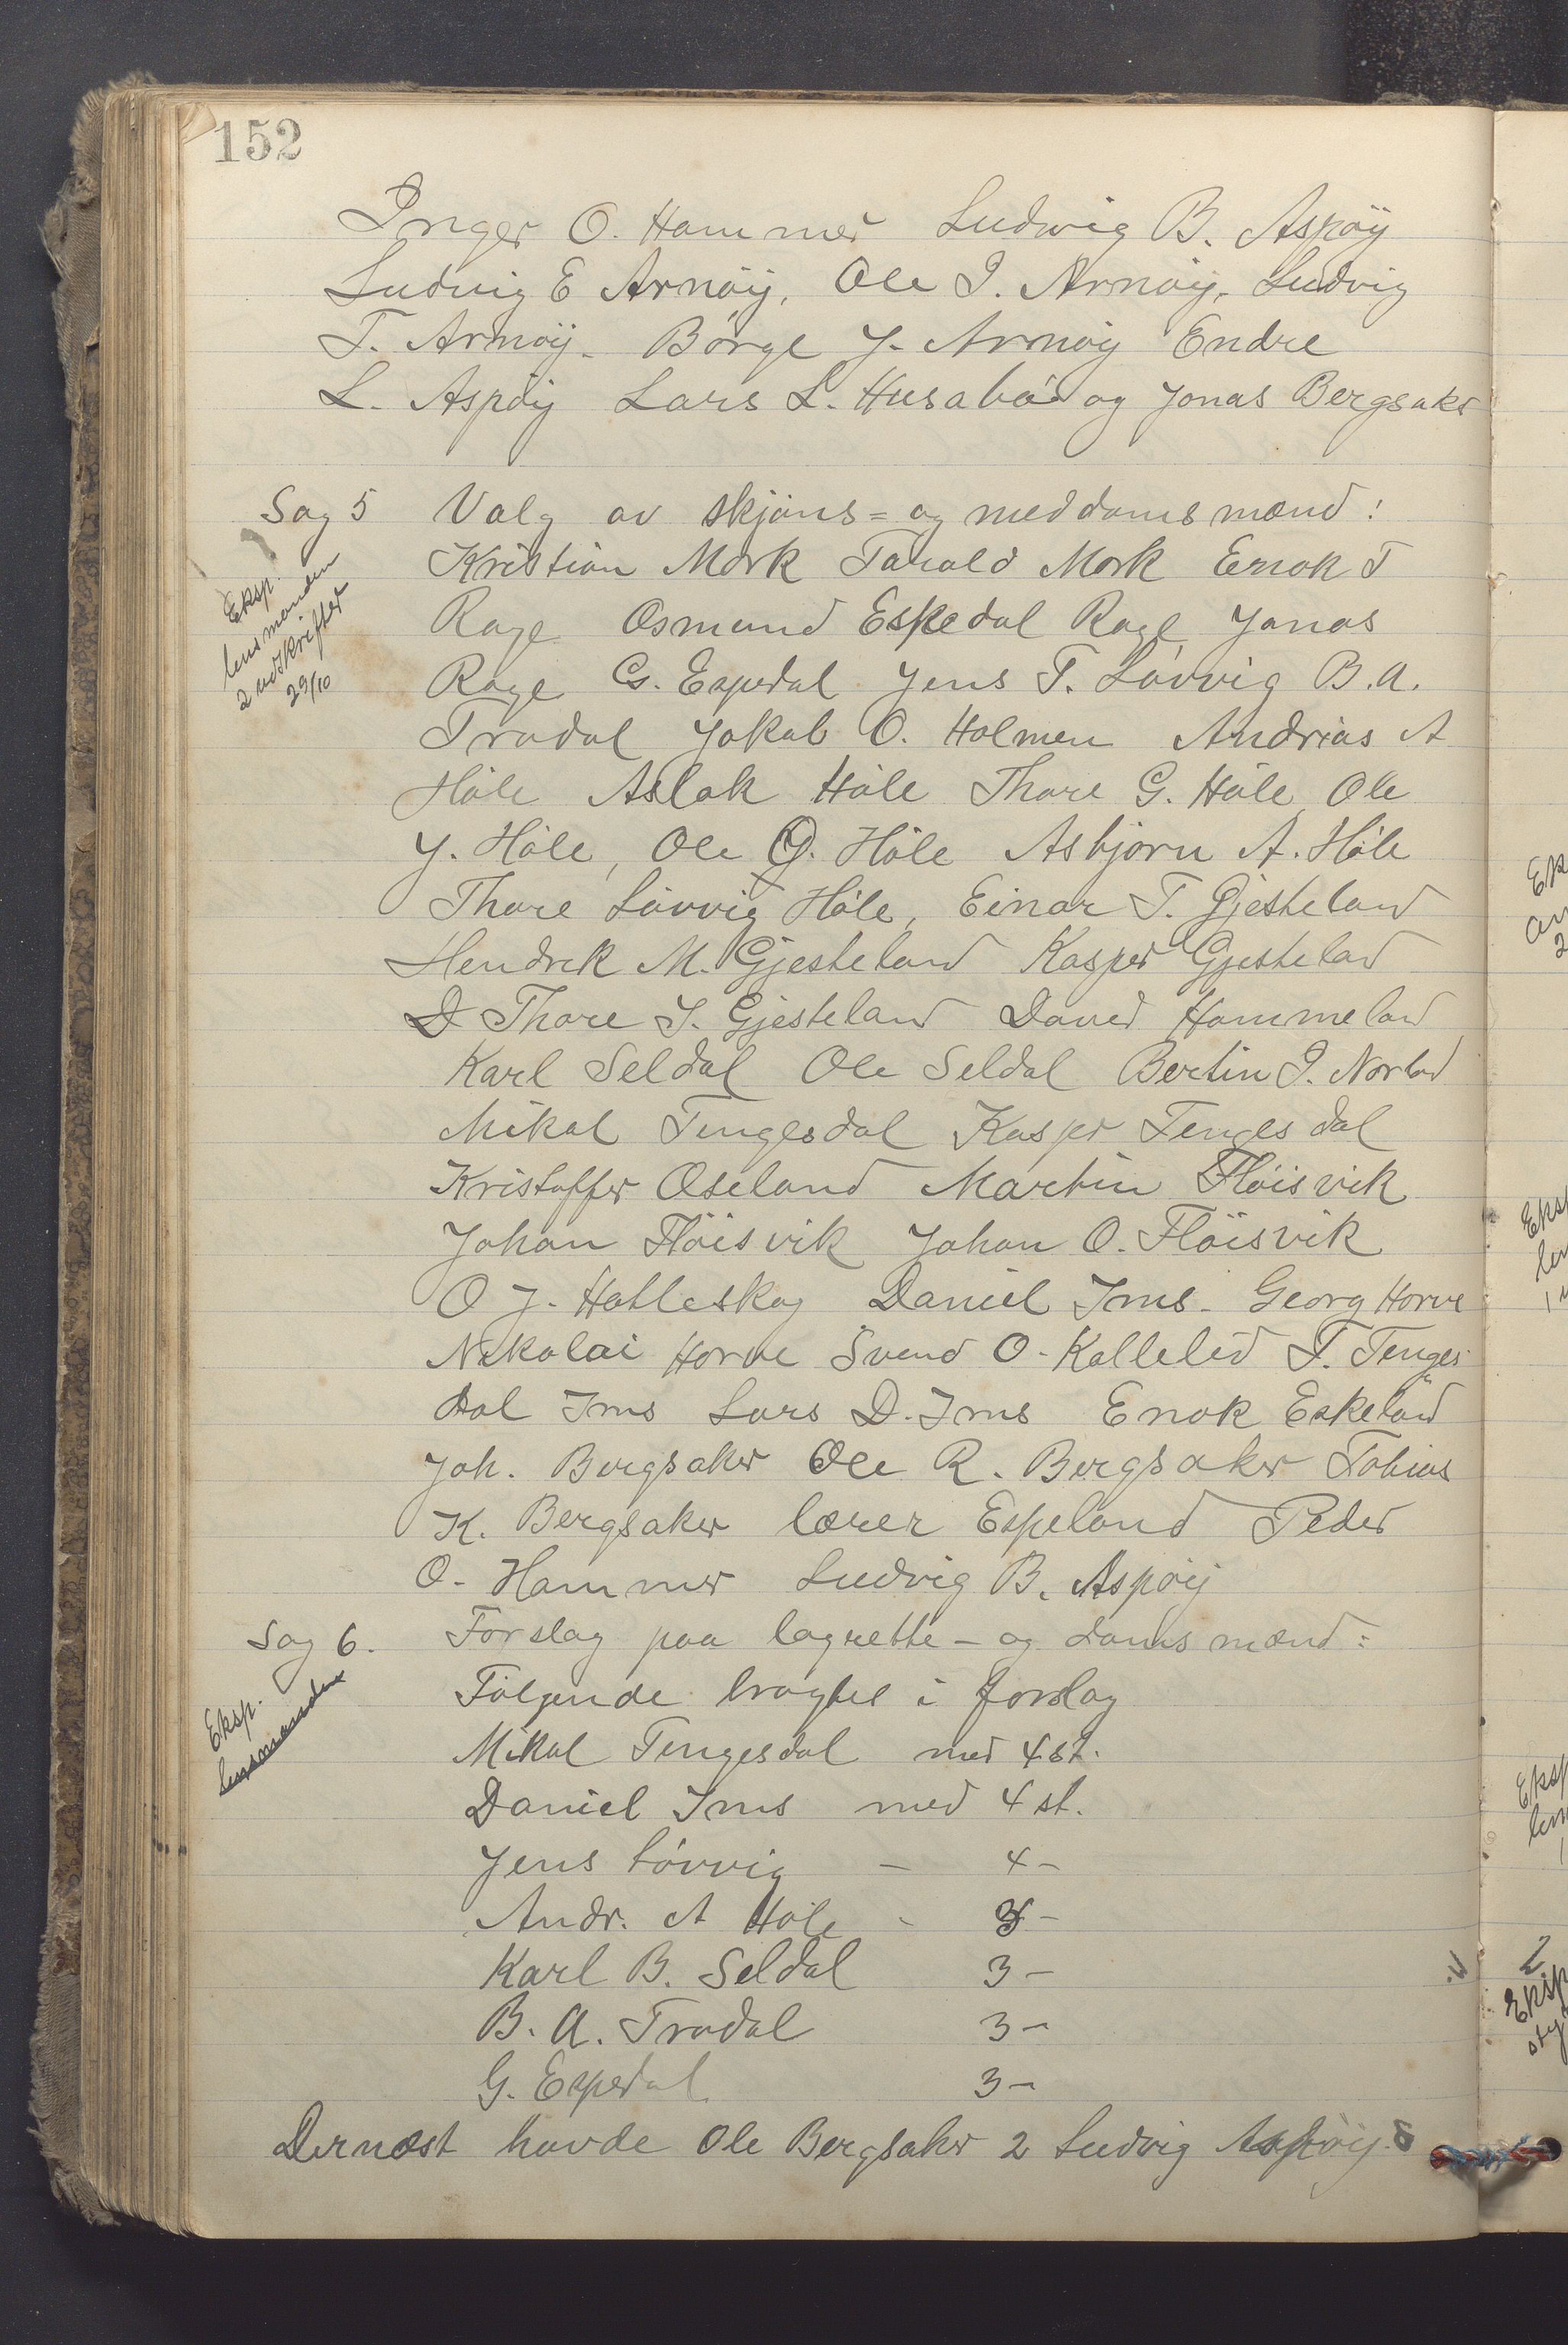 152
Inger O. Hammer Ludvig B. Aspøy
Ludvig E Arnøy, Ole I. Arnøy, Ludvig
T. Arnøy. Børge J. Arnøy Endre
L. Aspøy Lars L. Husabø og Jonas Bergsaker
Sag 5 Valg av skjøns= og meddomsmænd:
Eksp.
lensmanden
2 utskrifter
29/10
Kristian Mork Tarald Mork Enok T
Rage Osmund Eskedal Rage Jonas
Rage G. Espedal Jens T. Løvvig B. A.
Tradal Jakob O. Holmen Andrias A
Høle Aslak Høle Thore G. Høle Ole
J. Høle, Ole G. Høle Asbjørn A. Høle
Thore Løvvig Høle, Einar T. Gjesteland
Hendrek M. Gjesteland Kasper Gjesteland
D Thore J. Gjesteland David Hommeland
Karl Seldal Ole Seldal Bertin I. Norland
Mikal Tengesdal Kasper Tengesdal
Kristoffer Øseland Martin Fløisvik
Johan Fløisvik Johan O. Fløisvik
O J. Hatleskog Daniel Ims. Georg Horve
Nikolai Horve Svend O. Kalleleid T. Tenges
dal Ims Lars D. Ims Enok Eskeland
Joh. Bergsaker Ole R. Bergsaker Tobias
K. Bergsaker lærer Espeland Peder
O. Hammer Ludvig B. Aspøy
Sag 6. Forslag paa lagrette- og domsmænd:
Eksp.
lensmanden
Følgende bragtes i forslag
Mikal Tengesdal med 4 st.
Daniel Ims med 4 st.
Jens Løvvig - 4 -
Andr. A Høle - 3 -
Karl B. Seldal 3 -
B. A. Tradal 3 -
G. Espedal 3 -
Dernæst havde Ole Bergsaker 2 Ludvig Aspøy